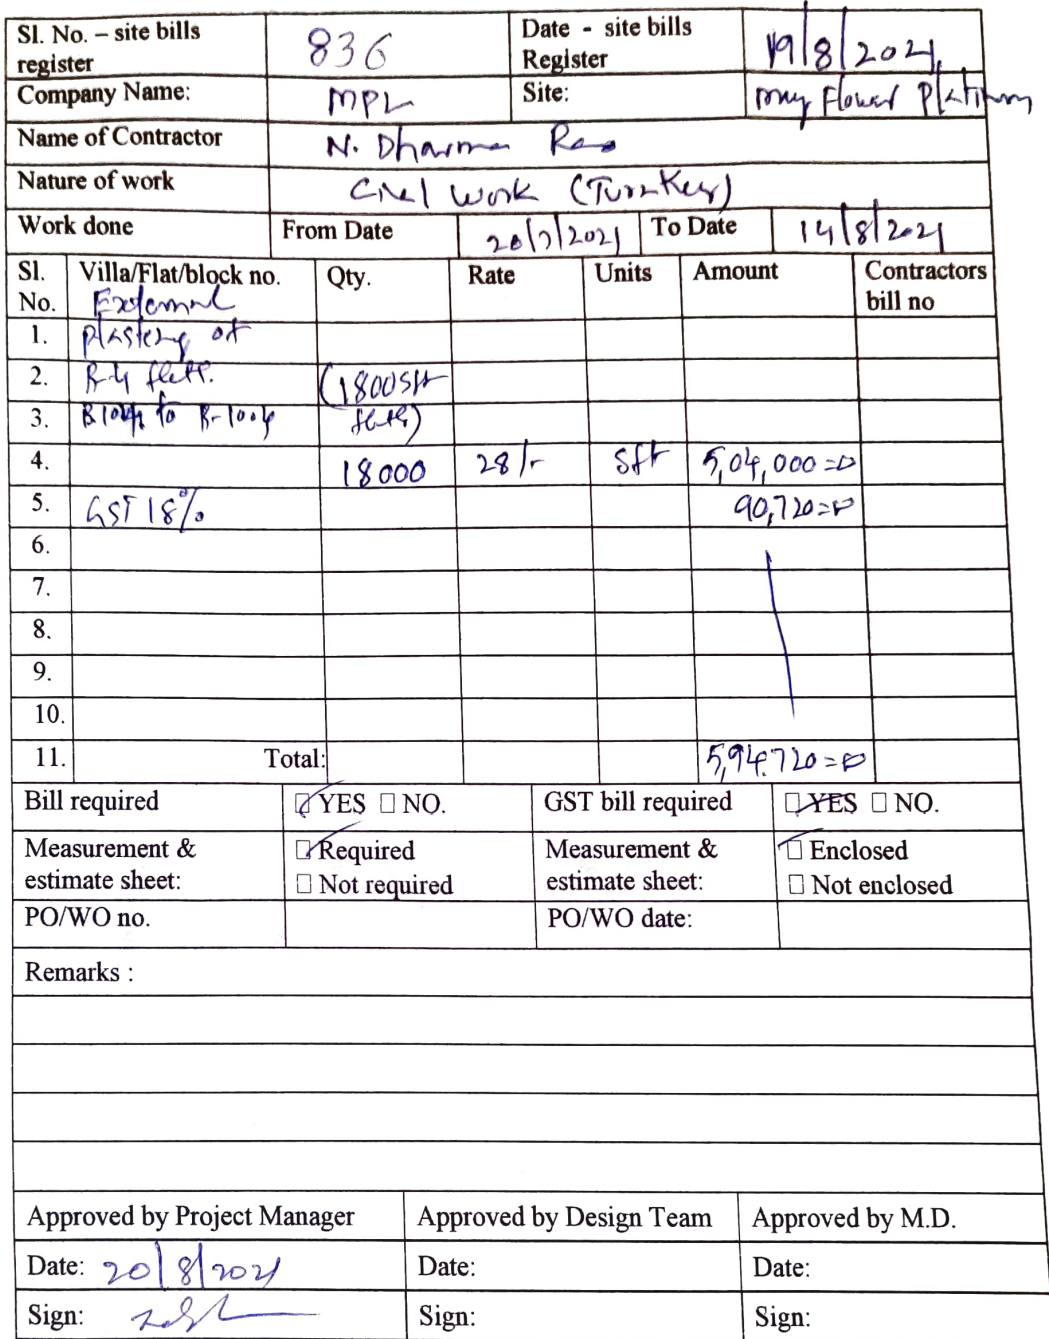 Sl. No. – site bills register 836 Date - site bills Register 19/8/2021
Company Name: MPL Site: May Flower Platinum
Name of Contractor N. Dharma Rao
Nature of work Civil work (Turnkey)
Work done From Date 20/7/2021 To Date 14/8/2021
Sl. No. Villa/Flat/block no. Qty. Rate Units Amount Contractors bill no
External
1. Plastering of
2. B-4 flats. (1800 sft
3. B 104 to B-1004 flats)
4. 18000 28/- sft 5,04,000=00
5. GST 18% 90,720=00
6.
7.
8.
9.
10.
11. Total: 5,94,720=00
Bill required YES NO. GST bill required YES NO.
Measurement & estimate sheet: Required Not required Measurement & estimate sheet: Enclosed Not enclosed
PO/WO no. PO/WO date:
Remarks :
Approved by Project Manager Approved by Design Team Approved by M.D.
Date: 20/8/2021 Date: Date:
Sign: Sign: Sign: